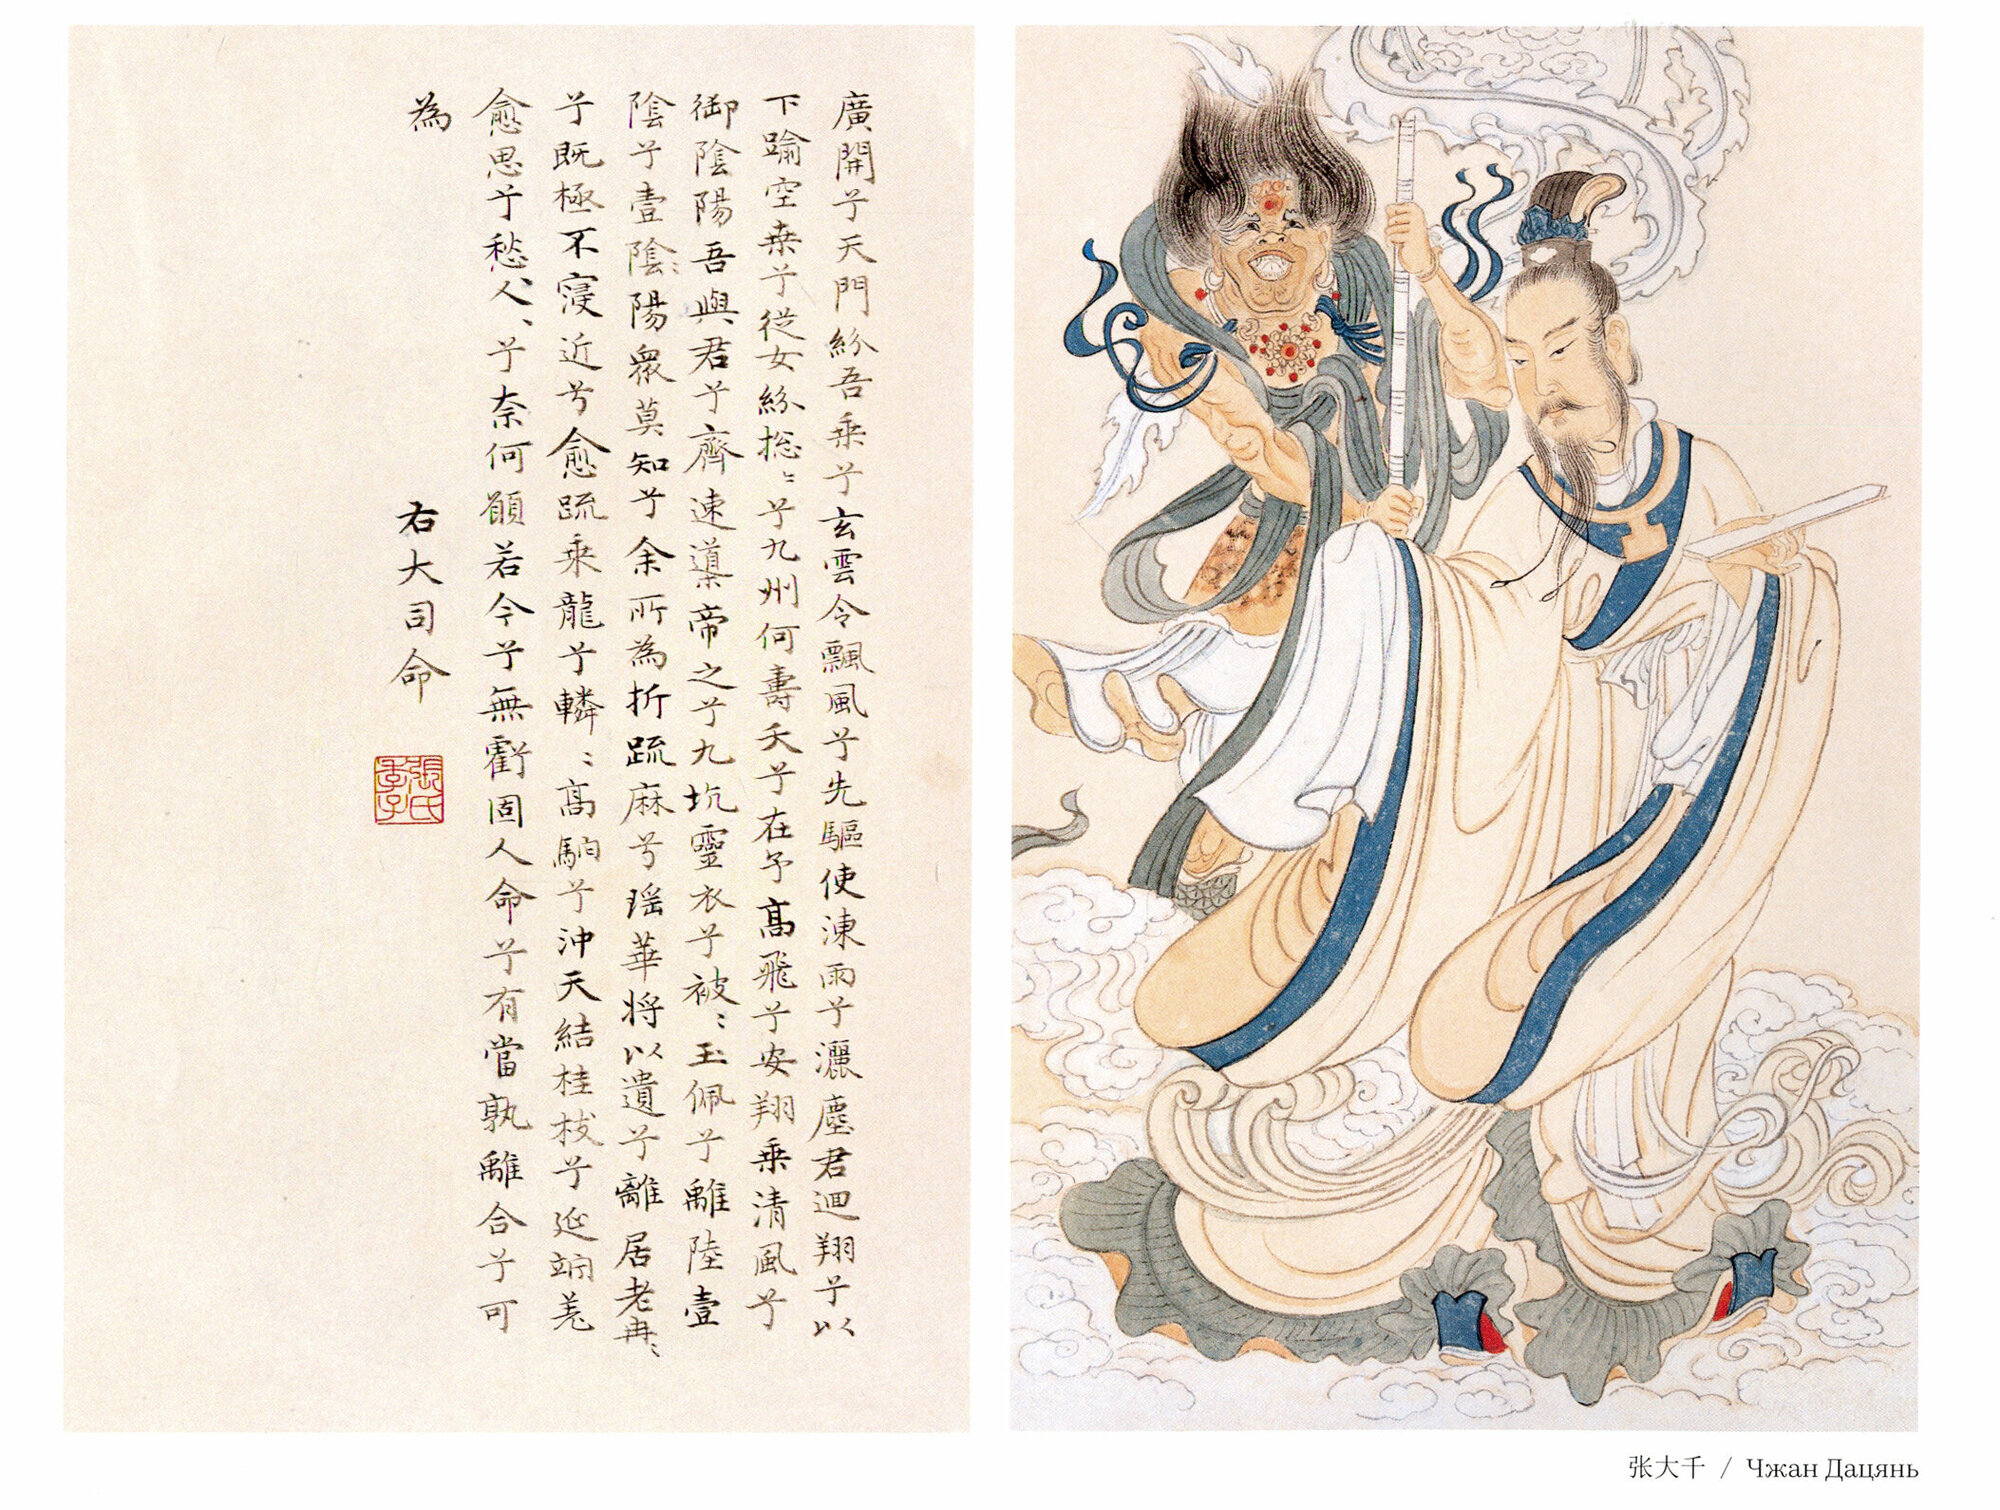 廣開兮天門紛吾乘兮玄雲令飄風兮先驅使涷雨兮灑塵君迴翔兮以
下踰空桒兮從女紛捴〻兮九州何壽夭兮在予高飛兮安翔乗清風兮
御陰陽吾與君兮齊速導帝之兮九坑靈衣兮被〻玉佩兮離陸壹
陰兮壹陰〻陽眾莫知兮余所為折疏麻兮瑶華将以遺兮離居老冉〻
兮既極不寖近兮愈疏乘龍兮轔〻高駒兮沖天結桂枝兮延竚羌
愈思兮愁〻人〻兮奈何願若今兮無虧固人命兮有當孰離合兮可
為
右大司命
張氏季子
张大千 / Чжан Дацянь